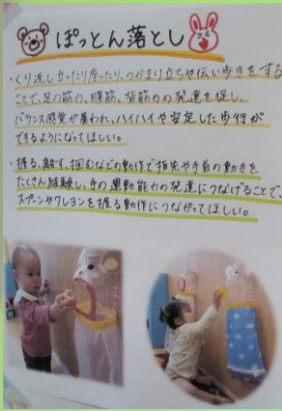 ぽっとん落とし
・くり返し立ったり座ったり、つかまり立ちや伝い歩きをする
ことで、足の筋力、腹筋、背筋力の発達を促し、
バランス感覚が養われ、ハイハイや安定した歩行が
できるようになってほしい。
・握る、離す、掴むなどの動作で指先や手首の動きを
たくさん経験し、手の運動能力の発達につなげることで、
スプーンやクレヨンを握る動作につながってほしい。